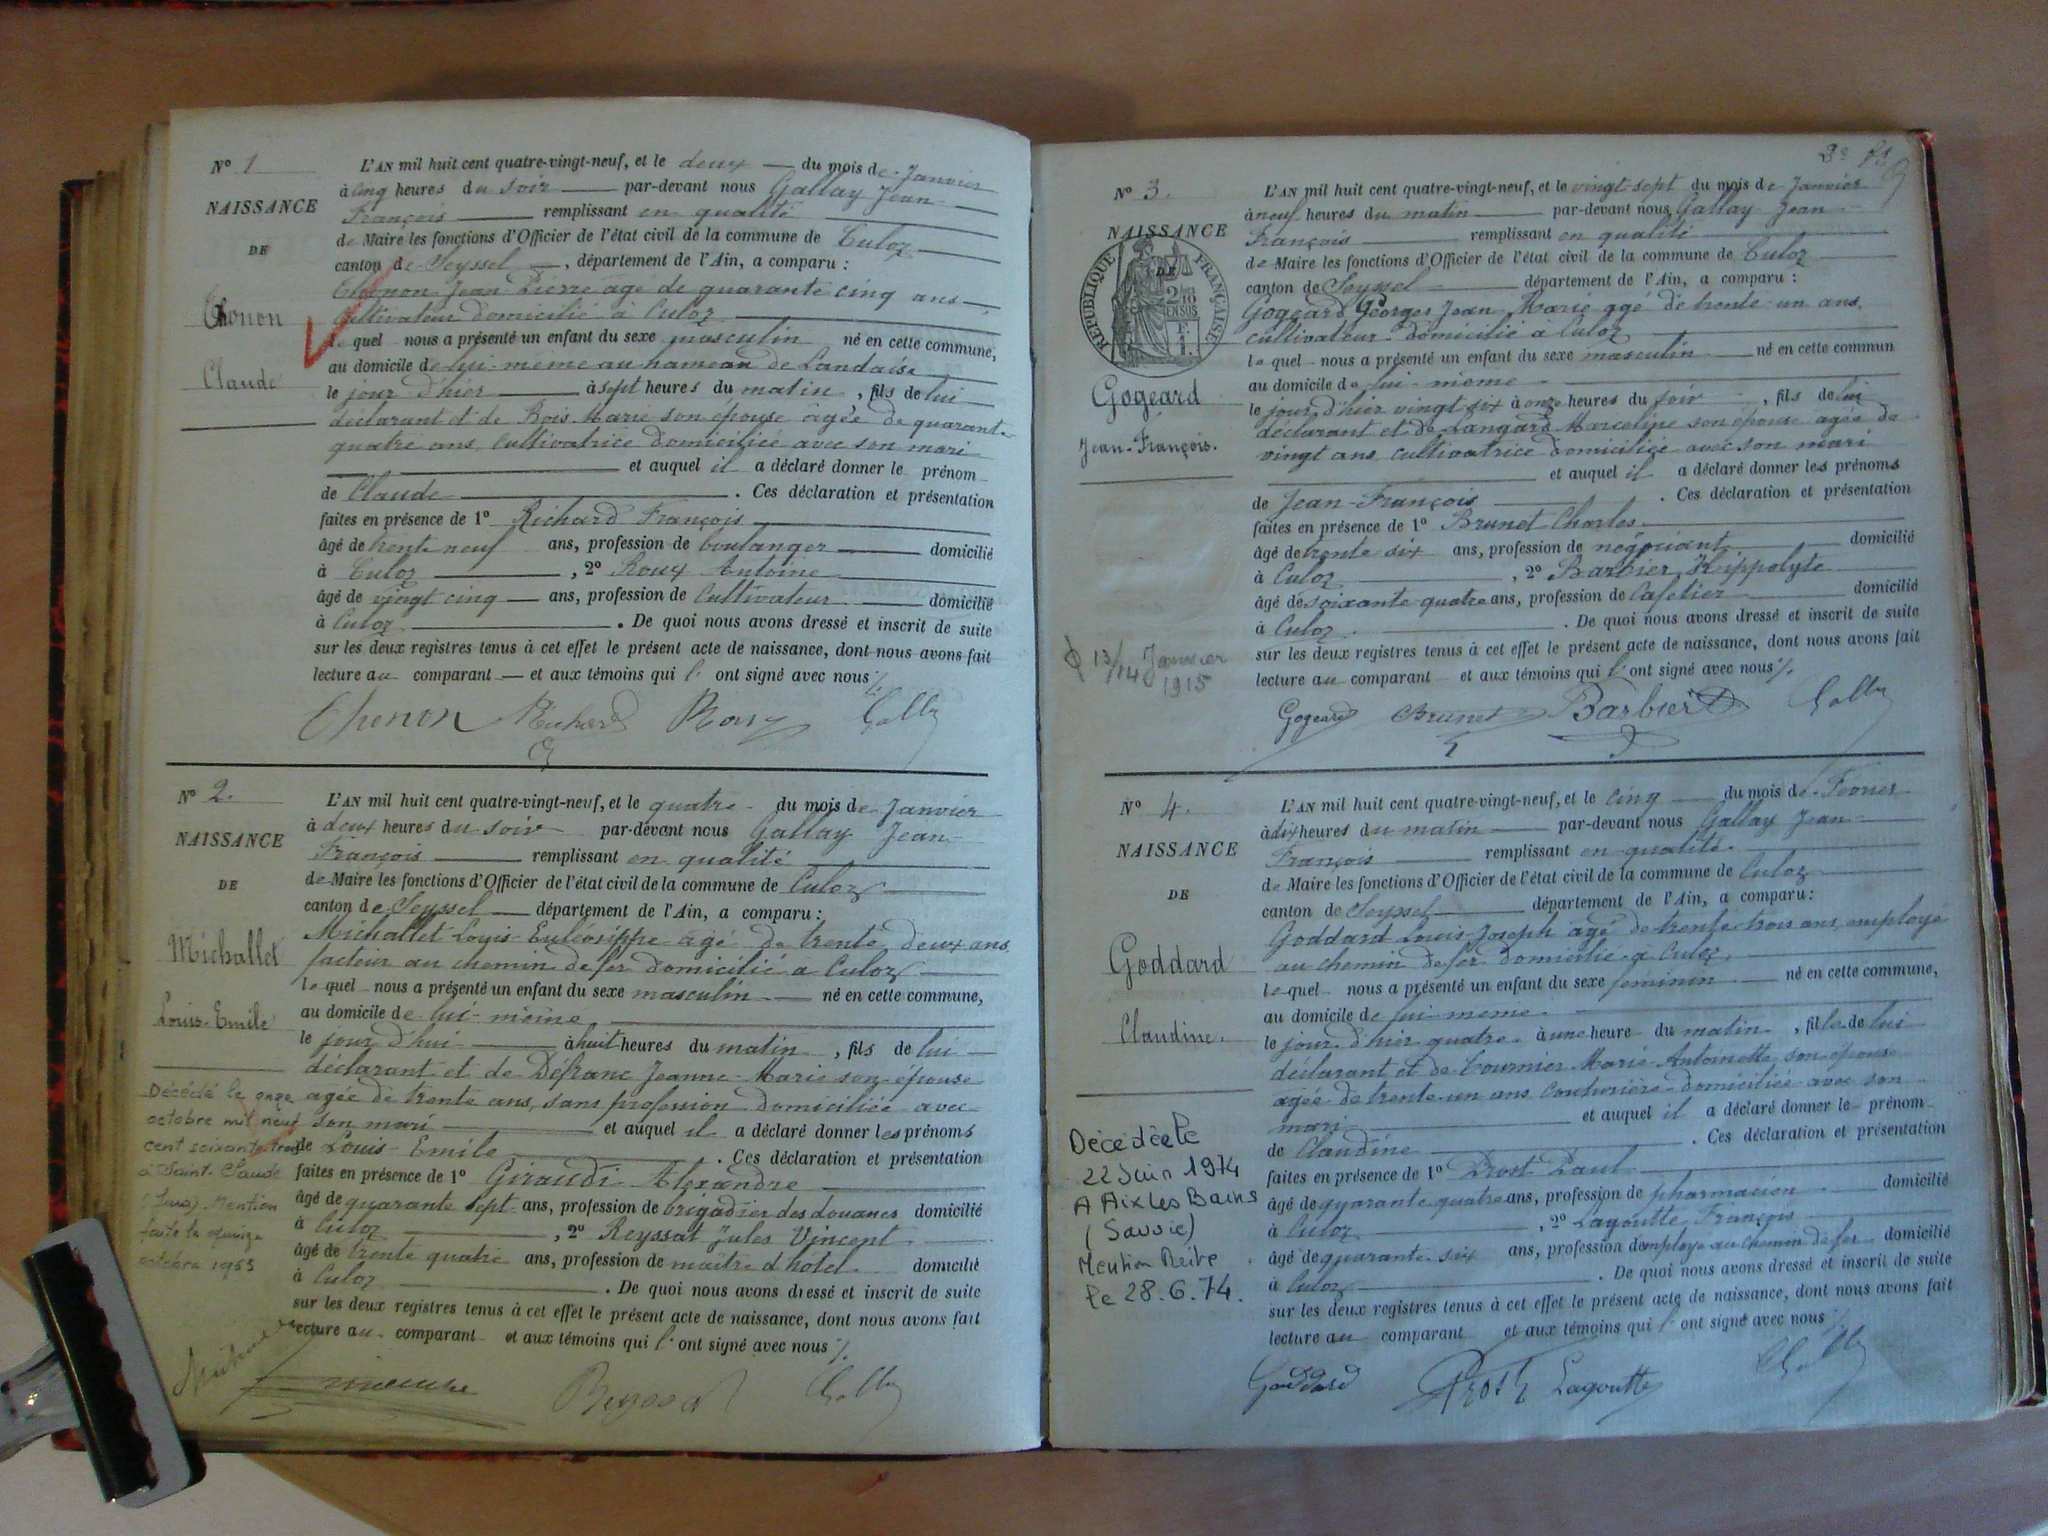 N° 1
NAISSANCE
DE
Thonon
Claude
L'AN mil huit cent quatre-vingt-neuf, et le deux du mois de Janvier
à cinq heures du soir par-devant nous Gallay Jean
François remplissant en qualité
de Maire les fonctions d'Officier de l'état civil de la commune de Culoz
canton de Seyssel, département de l'Ain, a comparu :
Jean Pierre âgé de quarante cinq ans
Cultivateur domicilié à Culoz
le quel nous a présenté un enfant du sexe masculin né en cette commune,
au domicile de lui-même au hameau de Landaise
le jour d'hier à sept heures du matin, fils de lui
déclarant et de Bois Marie son épouse âgée de quarante
quatre ans, cultivatrice domiciliée avec son mari
et auquel il a déclaré donner le prénom
de Claude. Ces déclaration et présentation
faites en présence de 1° Richard François
âgé de trente neuf ans, profession de boulanger domicilié
à Culoz, 2° Roux Antoine
âgé de vingt cinq ans, profession de Cultivateur domicilié
à Culoz. De quoi nous avons dressé et inscrit de suite
sur les deux registres tenus à cet effet le présent acte de naissance, dont nous avons fait
lecture au comparant et aux témoins qui l' ont signé avec nous ./.
Richard Gally
N° 2.
NAISSANCE
DE
Michallet
Louis-Emile
Décédé le onze
octobre mil neuf
cent soixante trois
à Saint-Claude
(Jura) Mention
faite le quinze
octobre 1963
L'AN mil huit cent quatre-vingt-neuf, et le quatre du mois de Janvier
à deux heures du soir par-devant nous Gallay Jean
François remplissant en qualité
de Maire les fonctions d'Officier de l'état civil de la commune de Culoz
canton de Seyssel département de l'Ain, a comparu :
Michallet Louis Euléosippe âgé de trente deux ans
facteur au chemin de fer domicilié à Culoz
le quel nous a présenté un enfant du sexe masculin né en cette commune,
au domicile de lui-même
le jour d'hui à huit heures du matin, fils de lui
déclarant et de Défranc Jeanne Marie son épouse
agée de trente ans, sans profession domiciliée avec
son mari et auquel il a déclaré donner les prénoms
de Louis Emile. Ces déclaration et présentation
faites en présence de 1° Giraudi Alexandre
âgé de quarante sept ans, profession de brigadier des douanes domicilié
à Culoz, 2° Reyssat Jules Vincent
âgé de trente quatre ans, profession de maître d'hôtel domicilié
à Culoz. De quoi nous avons dressé et inscrit de suite
sur les deux registres tenus à cet effet le présent acte de naissance, dont nous avons fait
lecture au comparant et aux témoins qui l' ont signé avec nous ./.
Gally
N° 3.
NAISSANCE
DE
RÉPUBLIQUE FRANÇAISE
Gogeard
Jean-François.
13/14 Janvier
1915
L'AN mil huit cent quatre-vingt-neuf, et le vingt sept du mois de Janvier
à neuf heures du matin par-devant nous Gallay Jean
François remplissant en qualité
de Maire les fonctions d'Officier de l'état civil de la commune de Culoz
canton de Seyssel département de l'Ain, a comparu :
Gogeard Georges Jean Marie agé de trente un ans
cultivateur domicilié à Culoz
le quel nous a présenté un enfant du sexe masculin né en cette commun
au domicile de lui-même
le jour d'hier vingt six à onze heures du soir, fils de lui
déclarant et de Langard Marceline son épouse agée de
vingt ans cultivatrice domiciliée avec son mari
et auquel il a déclaré donner les prénoms
de Jean-François. Ces déclaration et présentation
faites en présence de 1° Brunet Charles
âgé de trente six ans, profession de négociant domicilié
à Culoz, 2° Barbier Hippolyte
âgé de soixante quatre ans, profession de Cafetier domicilié
à Culoz. De quoi nous avons dressé et inscrit de suite
sur les deux registres tenus à cet effet le présent acte de naissance, dont nous avons fait
lecture au comparant et aux témoins qui l' ont signé avec nous ./.
Gogeard Brunet Barbier Gally
N° 4.
NAISSANCE
DE
Goddard
Claudine.
Décédée le
22 Juin 1974
A Aix les Bains
(Savoie)
Mention
le 28.6.74.
L'AN mil huit cent quatre-vingt-neuf, et le cinq du mois de Février
à dix heures du matin par-devant nous Gallay Jean
François remplissant en qualité
de Maire les fonctions d'Officier de l'état civil de la commune de Culoz
canton de Seyssel département de l'Ain, a comparu :
Goddard Louis Joseph agé de trente trois ans, employé
au chemin de fer domicilié à Culoz
le quel nous a présenté un enfant du sexe féminin né en cette commune,
au domicile de lui-même
le jour d'hier quatre à une heure du matin, fille de lui
déclarant et de Tournier Marie Antoinette, son épouse
agée de trente un ans Couturière domiciliée avec son
mari et auquel il a déclaré donner le prénom
de Claudine. Ces déclaration et présentation
faites en présence de 1° Prost Paul
âgé de quarante quatre ans, profession de pharmacien domicilié
à Culoz, 2° Lagoutte François
âgé de quarante six ans, profession d'employé au chemin de fer domicilié
à Culoz. De quoi nous avons dressé et inscrit de suite
sur les deux registres tenus à cet effet le présent acte de naissance, dont nous avons fait
lecture au comparant et aux témoins qui l' ont signé avec nous ./.
Goddard Prost Lagoutte Gally